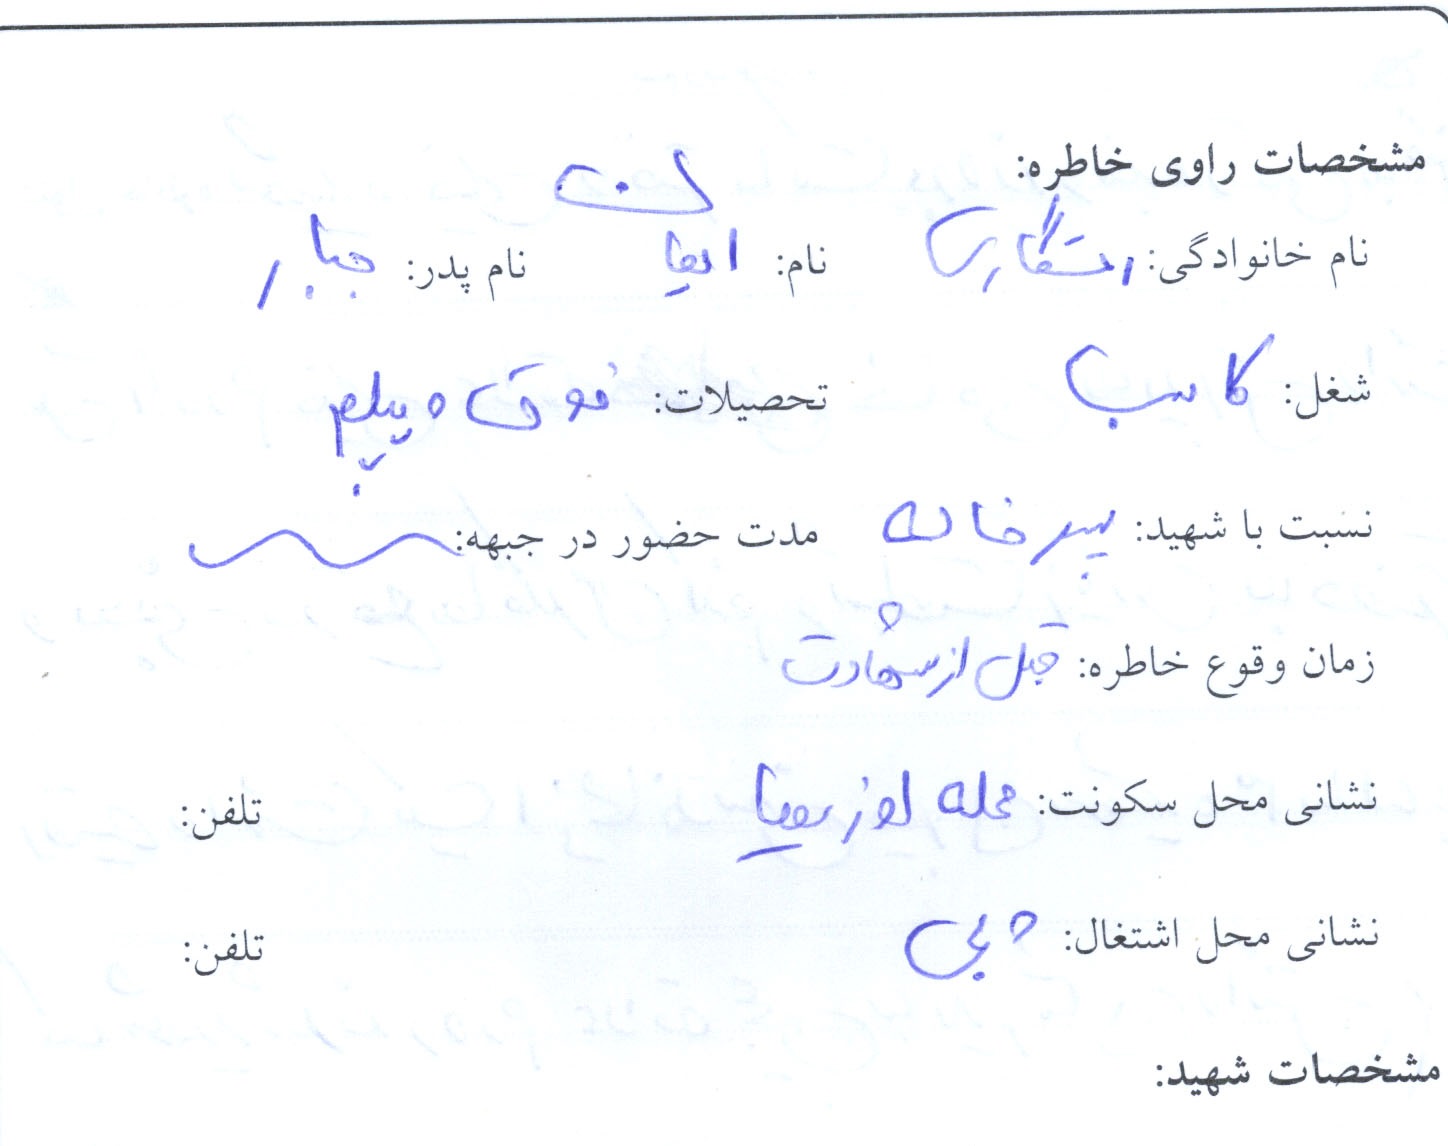 مشخصات راوی خاطره:
نام خانوادگی: رستگاری نام: ایمان نام پدر: جبار
شغل: کاسب تحصیلات: فوق دیپلم
نسبت با شهید: پسر خاله مدت حضور در جبهه:
زمان وقوع خاطره: قبل از شهادت
نشانی محل سکونت: محله تلفن:
نشانی محل اشتغال: تلفن:
مشخصات شهید: